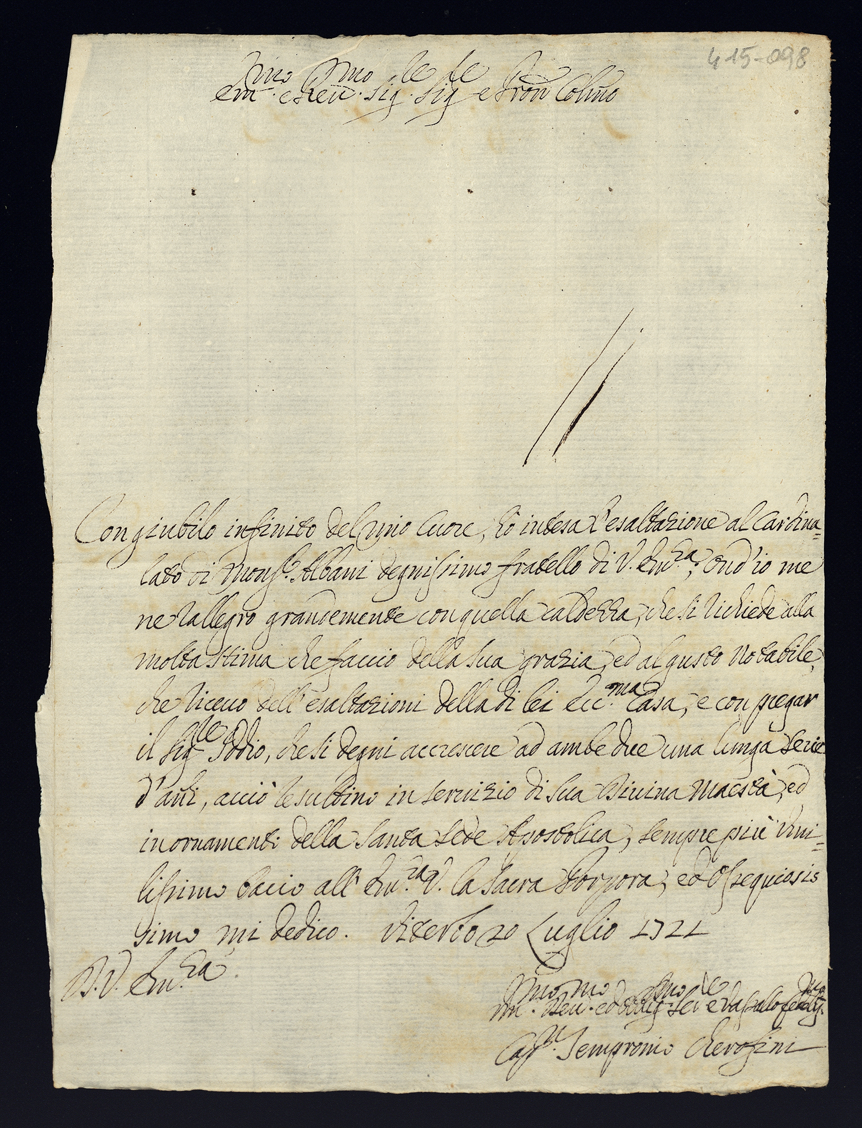 415-098
Em.mo e Reu.mo Sig.re Sig.re e Pron Colmo
Con giubilo infinito del mio Cuore, hò intesa l'esaltazione al Cardina-
lato di Mons.re Albani degnissimo fratello di V. Em.za, ond'io me
ne rallegro grandemente con quella caldezza, che si richiede alla
molta stima che faccio della sua grazia, ed al gusto notabile,
che riceuo dell'esaltazioni della di lei Ecc.ma Casa, e con pregar
il Sig.re Iddio, che si degni accrescere ad ambe due una lunga serie
d'anni, acciò le subbino in seruizio di Sua Diuina Maestà, ed
in ornamenti della Santa Sede Apostolica, sempre più umi-
lissimo bacio all'Em.za V. la Sacra Porpora, ed ossequiosis
simo mi dedico. Viterbo 20 Luglio 1721
D. V. Em.za
Um.mo Reu.mo ed obblig.mo Ser.re e
Sempronio